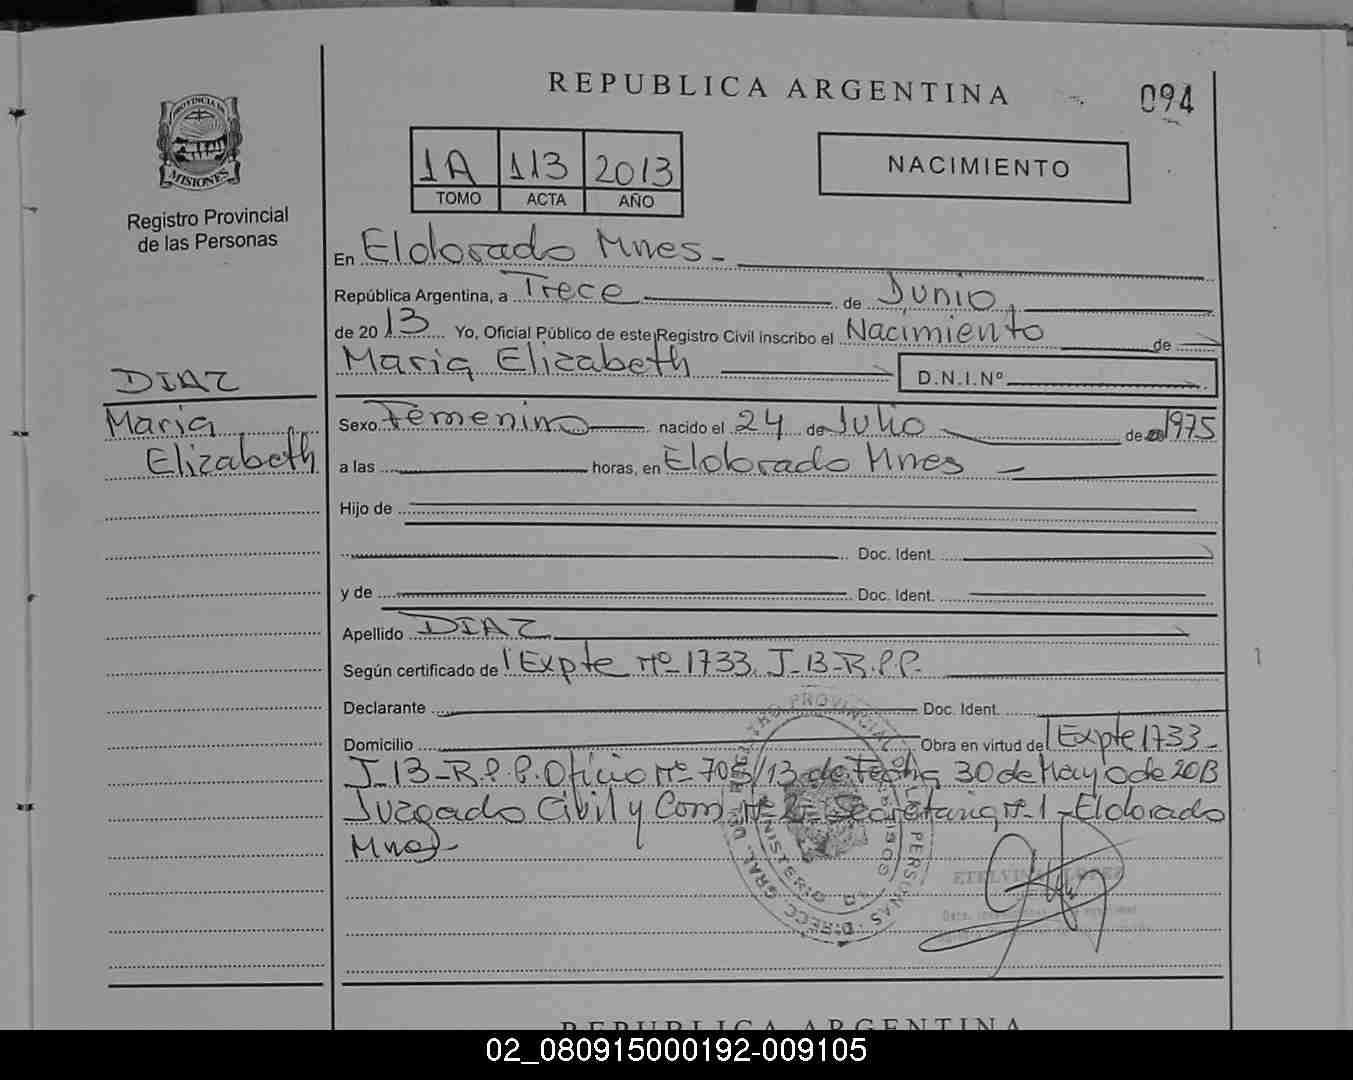 REPUBLICA ARGENTINA
094
PROVINCIA DE
MISIONES
Registro Provincial
de las Personas
1A 113 2013
TOMO ACTA AÑO
NACIMIENTO
En Eldorado Mnes -
República Argentina, a Trece de Junio
de 2013 Yo, Oficial Público de este Registro Civil inscribo el Nacimiento de
Maria Elizabeth D.N.I.Nº
DIAZ
Maria
Elizabeth
Sexo Femenino nacido el 24 de Julio de 1975
a las horas, en Eldorado Mnes
Hijo de
Doc. Ident.
y de Doc. Ident.
Apellido DIAZ
Según certificado de Expte Nº 1733. J-13-R.P.P.
Declarante Doc. Ident.
Domicilio Obra en virtud de Expte 1733-
J-13-R.P.P. Oficio Nº 705/13 de Fecha 30 de Mayo de 2013
Juzgado Civil y Com. Nº 2 - Secretaria Nº 1 - Eldorado
Mnes-
ETELVINA LOPEZ
REPUBLICA ARGENTINA
02_080915000192-009105